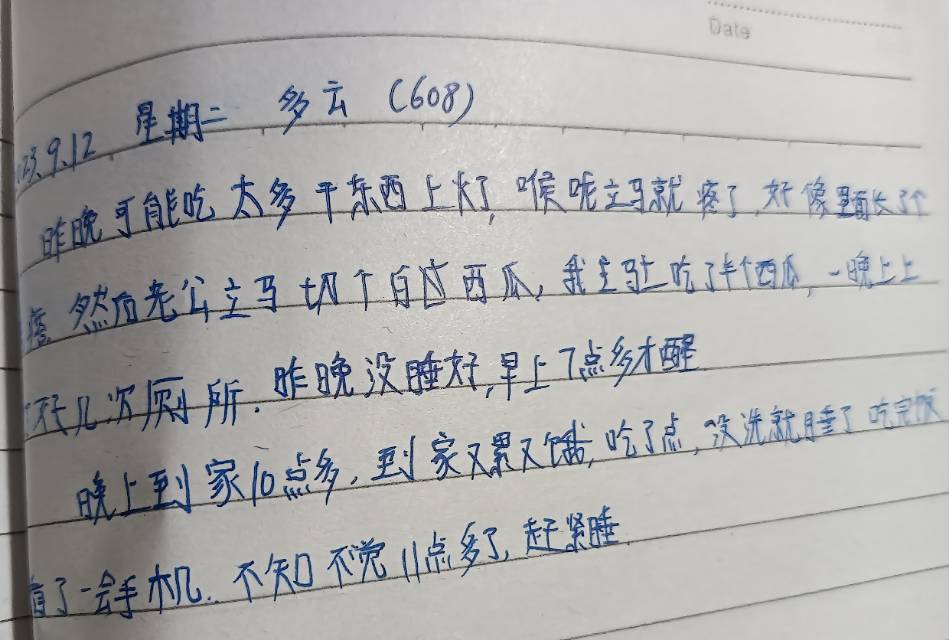 Date
23.9.12 星期二 多云 (608)
昨晚可能吃太多干东西上火了，喉咙立马就疼了，好像里面长了个
然后老公立马切个自过西瓜，我马上吃了半个西瓜，一晚上上
好几次厕所．昨晚没睡好，早上7点多才醒
晚上到家10点多，到家又累又饿，吃了点，没洗就睡了吃完饭
看了一会手机．不知不觉11点多了，赶紧睡